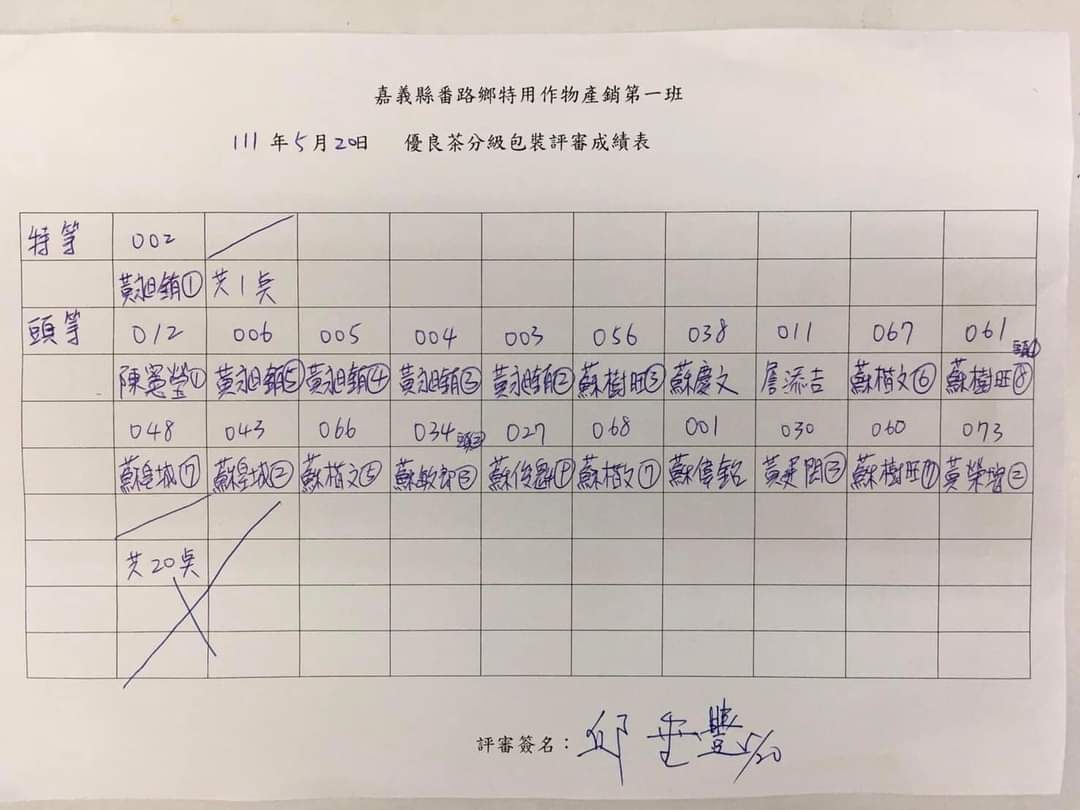 嘉義縣番路鄉特用作物產銷第一班
111 年 5 月 20 日 優良茶分級包裝評審成績表
特等 002
黃昶銷① 共1點
頭等 012 006 005 004 003 056 038 011 067 061 頭1
陳憲瑩① 黃昶銷⑤ 黃昶銷④ 黃昶銷③ 黃昶銷② 蘇樹旺③ 蘇慶文 詹添吉 蘇楷文⑥ 蘇樹旺⑧
048 043 066 034 頭③ 027 068 001 030 060 073
蘇皇城⑦ 蘇皇城② 蘇楷文⑤ 蘇敏郎③ 蘇俊 蘇楷文⑦ 蘇偉銘 黃 ③ 蘇樹旺⑦ 黃榮 ②
共20點
評審簽名： 邱垂豐 5/20